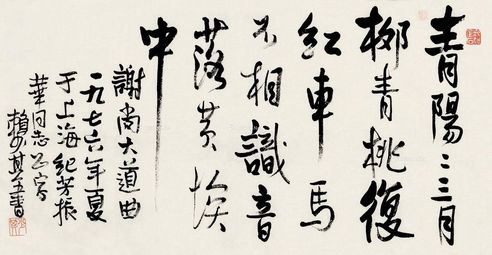 青陽二三月
柳青桃復
紅車馬
不相識音
落黄埃
中
謝尚大道曲
一九七六年夏
于上海紀芳振
華同志
賴少其